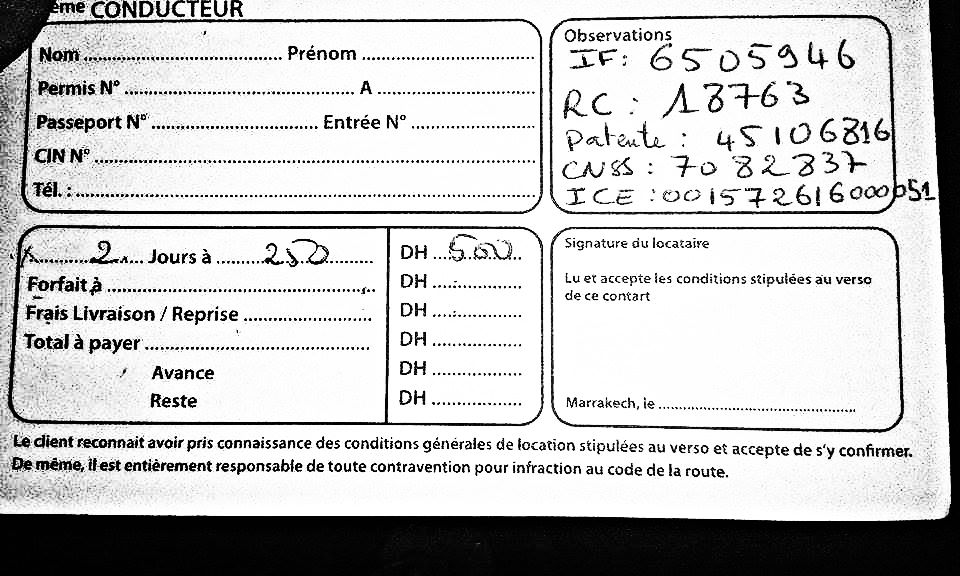 ème CONDUCTEUR
Nom .......... Prénom ..........
Permis N° .......... A ..........
Passeport N° .......... Entrée N° ..........
CIN N° ..........
Tél. : ..........
Observations
IF: 6505946
RC: 18763
Patente : 45106816
CNSS : 7082837
ICE : 001572616000051
2 Jours à 250 DH 500
Forfait à .......... DH ..........
Frais Livraison / Reprise .......... DH ..........
Total à payer .......... DH ..........
Avance DH ..........
Reste DH ..........
Signature du locataire
Lu et accepte les conditions stipulées au verso
de ce contart
Marrakech, le ..........
Le client reconnait avoir pris connaissance des conditions générales de location stipulées au verso et accepte de s'y confirmer.
De même, il est entièrement responsable de toute contravention pour infraction au code de la route.